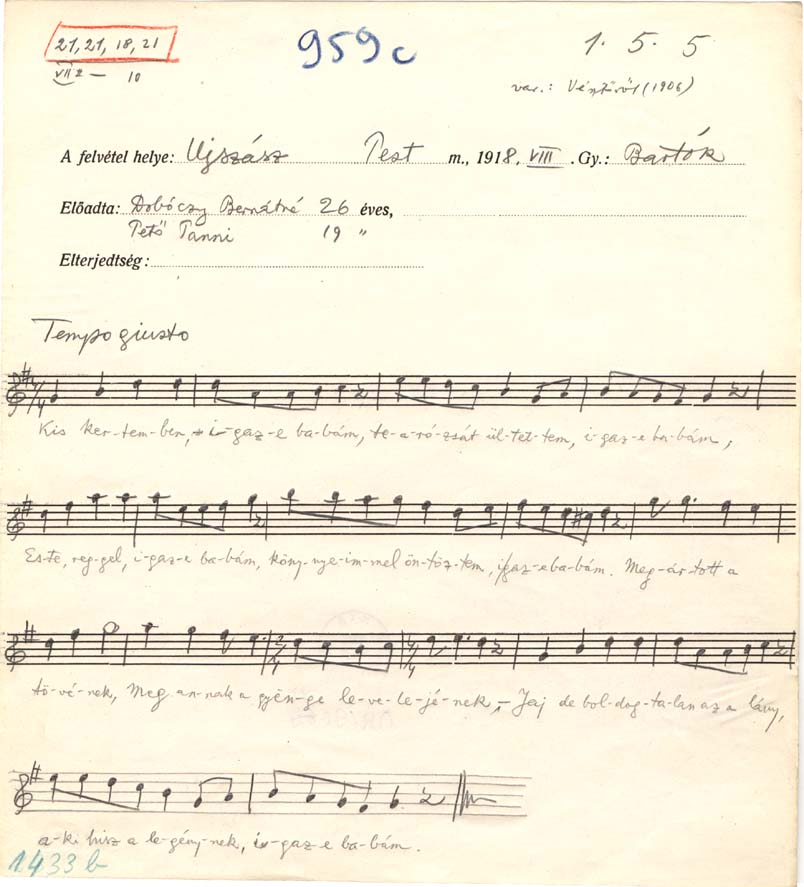 21, 21, 18, 21
VII 2 — 10
959c
1. 5. 5
var.: Vésztőről (1906)
A felvétel helye: Ujszász Pest m., 1918, VIII. Gy.: Bartók
Előadta: Dobóczy Bernátné 26 éves,
Pető Panni 19 "
Elterjedtség:
Tempo giusto
4/4
Kis ker-tem-ben, i-gaz-e ba-bám, te-a-ró-zsát ül-tet-tem, i-gaz-e ba-bám,
Es-te, reg-gel, i-gaz-e ba-bám, köny-nye-im-mel ön-töz-tem, igaz-e ba-bám. Meg-ár-tott a
2/4 4/4
tö-vé-nek, Meg an-nak a gyën-ge le-ve-le-jé-nek, – Jaj de bol-dog-ta-lan az a lány,
a-ki hisz a le-gény-nek, i-gaz-e ba-bám.
1433 b